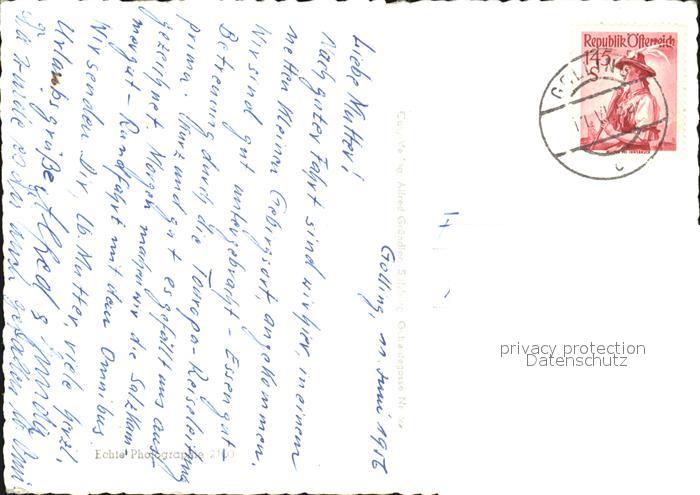 Golling, 10 Juni 1956
Liebe Mutter!
Nach guter Fahrt sind wir hier, in einem
netten kleinen Gebirgsort, angekommen.
Wir sind gut untergebracht - Essen gut!
Betreuung durch die Touropa-Reiseleitung
prima. Kurz und gut es gefällt uns aus-
gezeichnet. Morgen machen wir die Salzkam-
mergut-Rundfahrt mit dem Omnibus.
Wir senden Dir, lb. Mutter, viele herzl.
Urlaubsgrüße Alfred &
Echte Photographie
Alfred Gründler, Salzburg,
Republik Österreich
1.45 S
GOLLING
privacy protection
Datenschutz